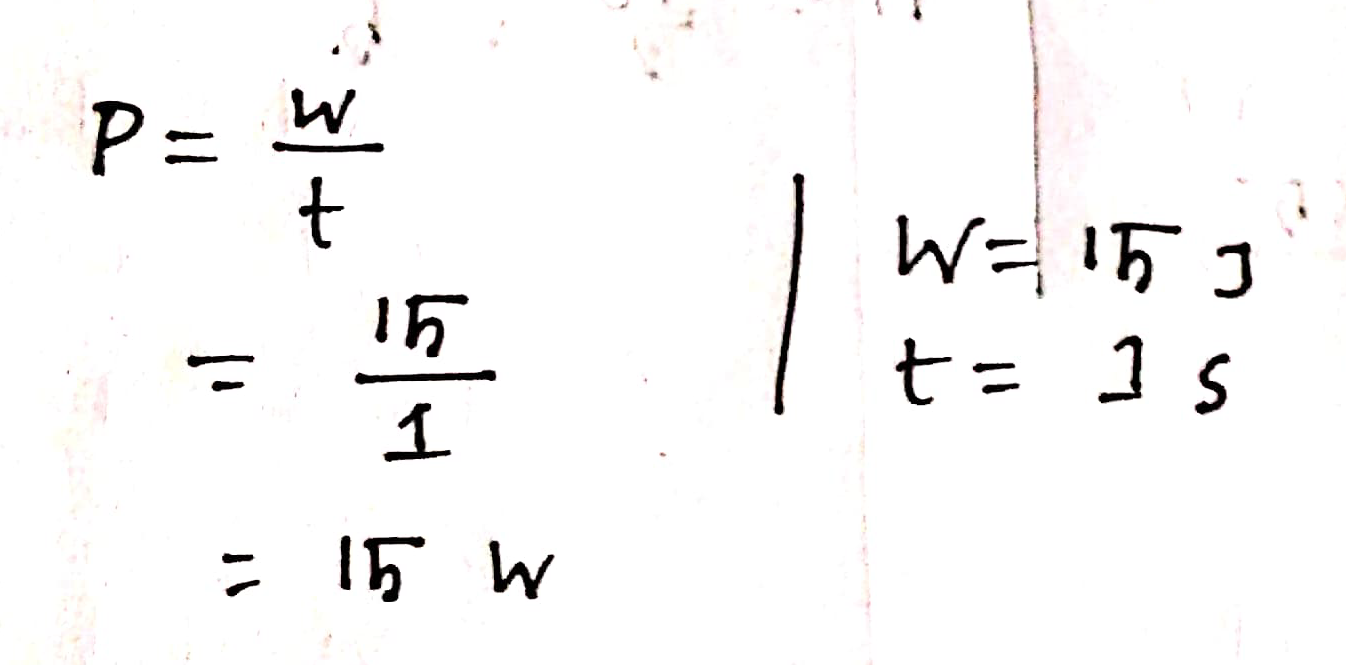 P = W/t
= 15/1
= 15 W
W = 15 J
t = 1 s